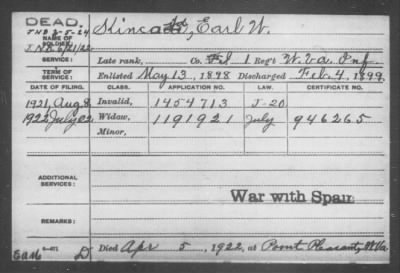 DEAD.
NAME OF SOLDIER: Kincaid, Earl W.
SERVICE: Late rank, Co. 1 Reg't W. Va. Inf.
TERM OF SERVICE: Enlisted May 13, 1898 Discharged Feb. 4, 1899
DATE OF FILING. CLASS. APPLICATION NO. LAW. CERTIFICATE NO.
1921, Aug 8 Invalid, 1454713 J-20
1922 July 22 Widow, 1191921 July 946265
Minor,
ADDITIONAL SERVICES:
War with Spain
REMARKS:
6-471 D Died Apr 5, 1922, at Point Pleasant, W. Va.